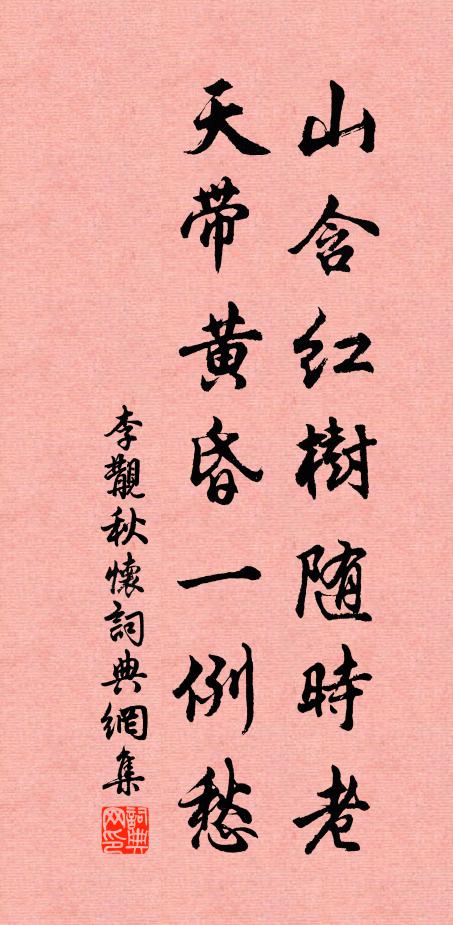 山含红樹随時老
天带黄昏一例愁
李觀秋懷詞典網集
詞典网印